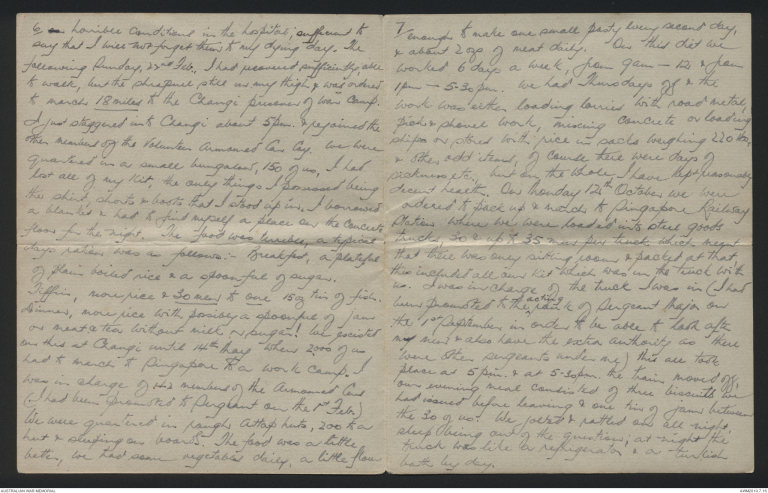 6 horrible conditions in the hospital, sufficient to
say that I will not forget them to my dying day. The
following Sunday, 22nd Feb. I had recovered sufficiently, able
to walk, but the shrapnel still in my thigh & was ordered
to march 18 miles to the Changi prisoner of war Camp.
I just staggered into Changi about 5pm. & rejoined the
other members of the Volunteer Armoured Car Coy. We were
quartered in a small bungalow, 150 of us, I had
lost all of my kit, the only things I possessed being
the shirt, shorts & boots that I stood up in, I borrowed
a blanket & had to find myself a place on the concrete
floor for the night. The food was terrible, a typical
days ration was as follows:- Breakfast, a plateful
of plain boiled rice & a spoonful of sugar.
Tiffin, more rice & 30 men to one 15oz tin of fish.
Dinner, more rice with possibly a spoonful of jam
or meat & tea without milk or sugar! We existed
on this at Changi until 14th May when 2000 of us
had to march to Singapore to a work camp. I
was in charge of 42 members of the Armoured Cars
(I had been promoted to Sergeant on the 1st Feb.)
We were quartered in rough Attap huts, 200 to a
hut & sleeping on boards. The food was a little
better, we had some vegetables daily, a little flour
7 enough to make one small pasty every second day,
& about 2ozs of meat daily. On this diet we
worked 6 days a week, from 9am - 12 & from
1pm - 5.30pm. We had Thursdays off & the
work was either loading lorries with road metal,
pick & shovel work, mixing concrete or loading
ships or stores with rice in sacks weighing 220 lbs,
& other odd items, of course there were days of
sickness etc, but on the whole, I have kept reasonably
decent health. On Monday 12th October we were
ordered to pack up & march to Singapore Railway
Station where we were loaded into steel goods
trucks, 30 & up to 35 men per truck which meant
that there was only sitting room & packed at that
this included all our kit which was in the truck with
us. I was in charge of the truck I was in (I had
been promoted to the acting rank of Sergeant Major on
the 1st September in order to be able to look after
my men & also have the extra authority as there
were other sergeants under me) this all took
place at 5pm, & at 5.30pm. the train moved off,
our evening meal consisted of three biscuits we
had issued before leaving & one tin of jam between
the 30 of us. We jolted & rattled on all night,
sleep being out of the question, at night the
truck was like a refrigerator & a turkish
bath by day.
AUSTRALIAN WAR MEMORIAL